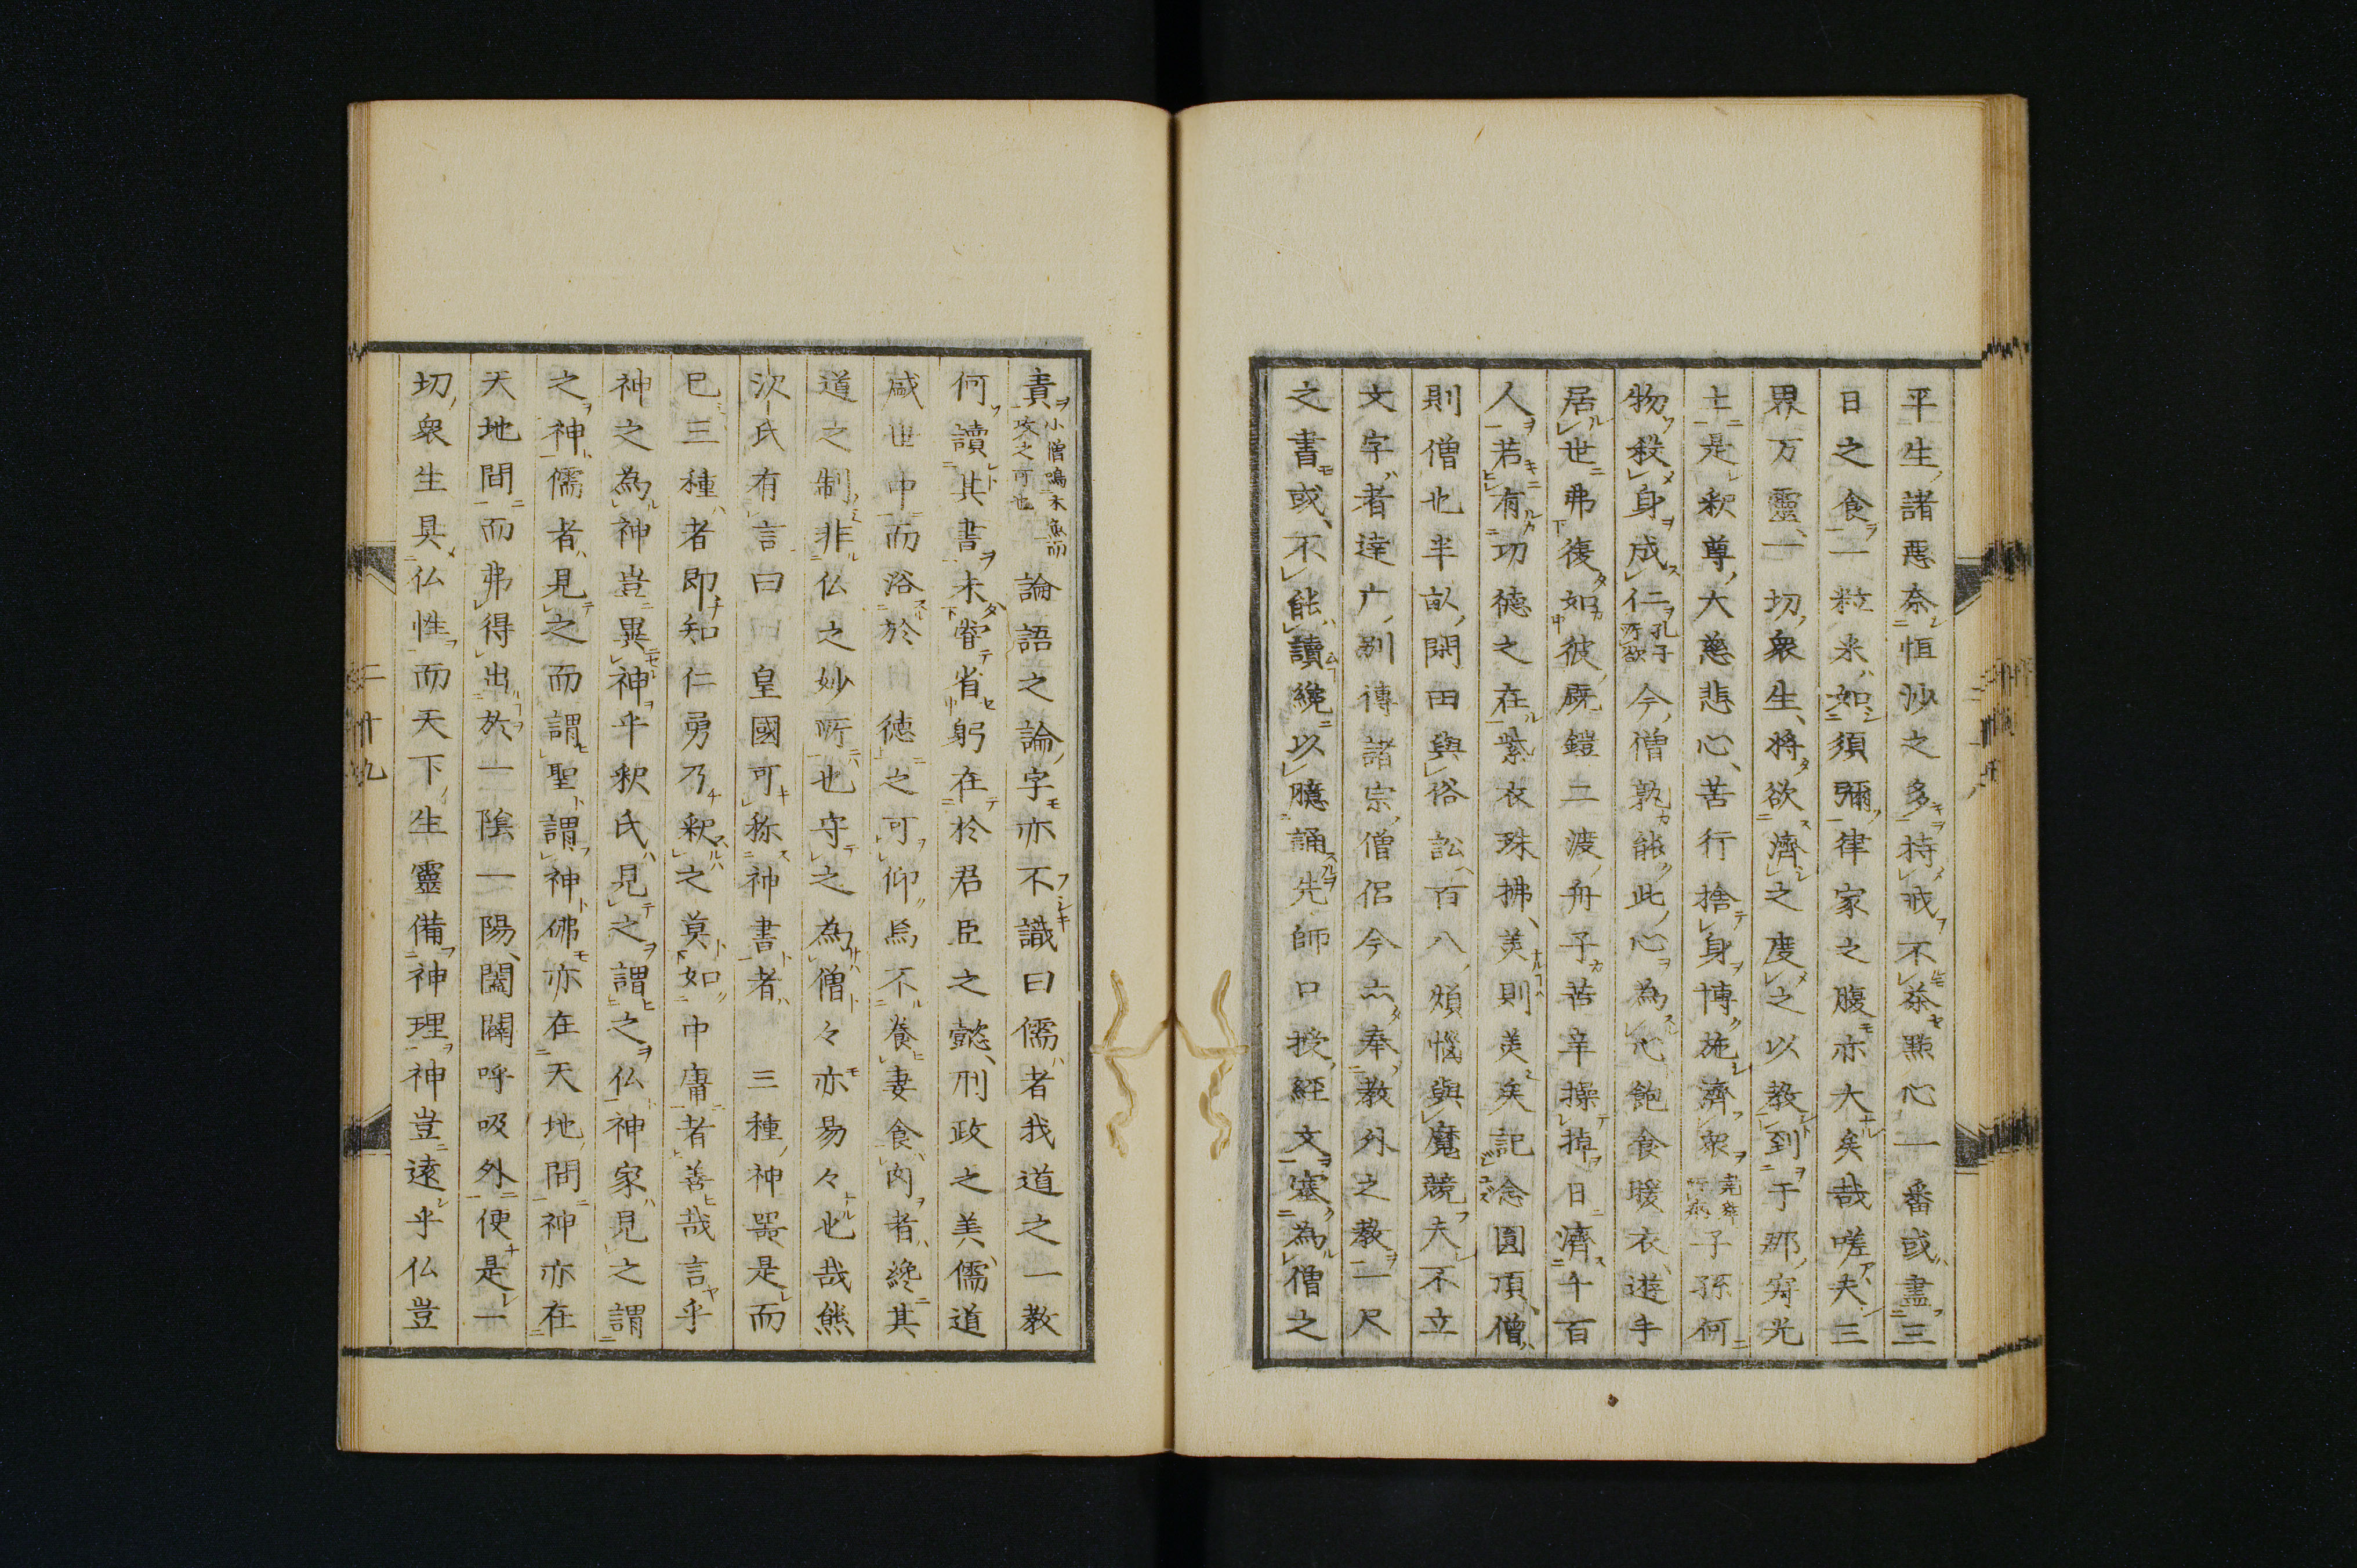 平生諸惡奈恒沙之多持戒不茶點心一番或盡三
日之食一粒米如須彌律家之腹亦大矣哉嗟夫三
界万靈一切衆生將欲濟之度之以教到于那寂光
土是釈尊大慈悲心苦行捨身博施濟衆堯舜所病子孫何
物殺身成仁孔子所歎今僧孰能此心為心飽食暖衣遊手
居世弗復如彼厩鐙二渡舟子苦辛操掉日濟千百
人若有功德之在紫衣珠拂美則美矣記念圓頂僧
則僧也半畝閑田與俗訟百八煩惱與魔競夫不立
文字者達广別傳諸宗僧侶今亦奉教外之教一尺
之書或不能讀纔以臆誦先師口授經文塞為僧之
責小僧鳴木魚而攻之可也論語之論字亦不識曰儒者我道之一教
何讀其書未嘗省躬在於君臣之懿刑政之美儒道
咸世中而浴於德之可仰焉不養妻食肉者纔其
道之制非仏之妙所也守之為僧々亦易々也哉熊
沢氏有言曰皇國可称神書者三種神器是而
已三種者即知仁勇乃釈之莫如中庸者善哉言乎
神之為神豈異神乎釈氏見之謂之仏神家見之謂
之神儒者見之而謂聖謂神佛亦在天地間神亦在
天地間而弗得出於一陰一陽闔闢呼吸外便是一
切衆生具仏性而天下生靈備神理神豈遠乎仏豈
二十九